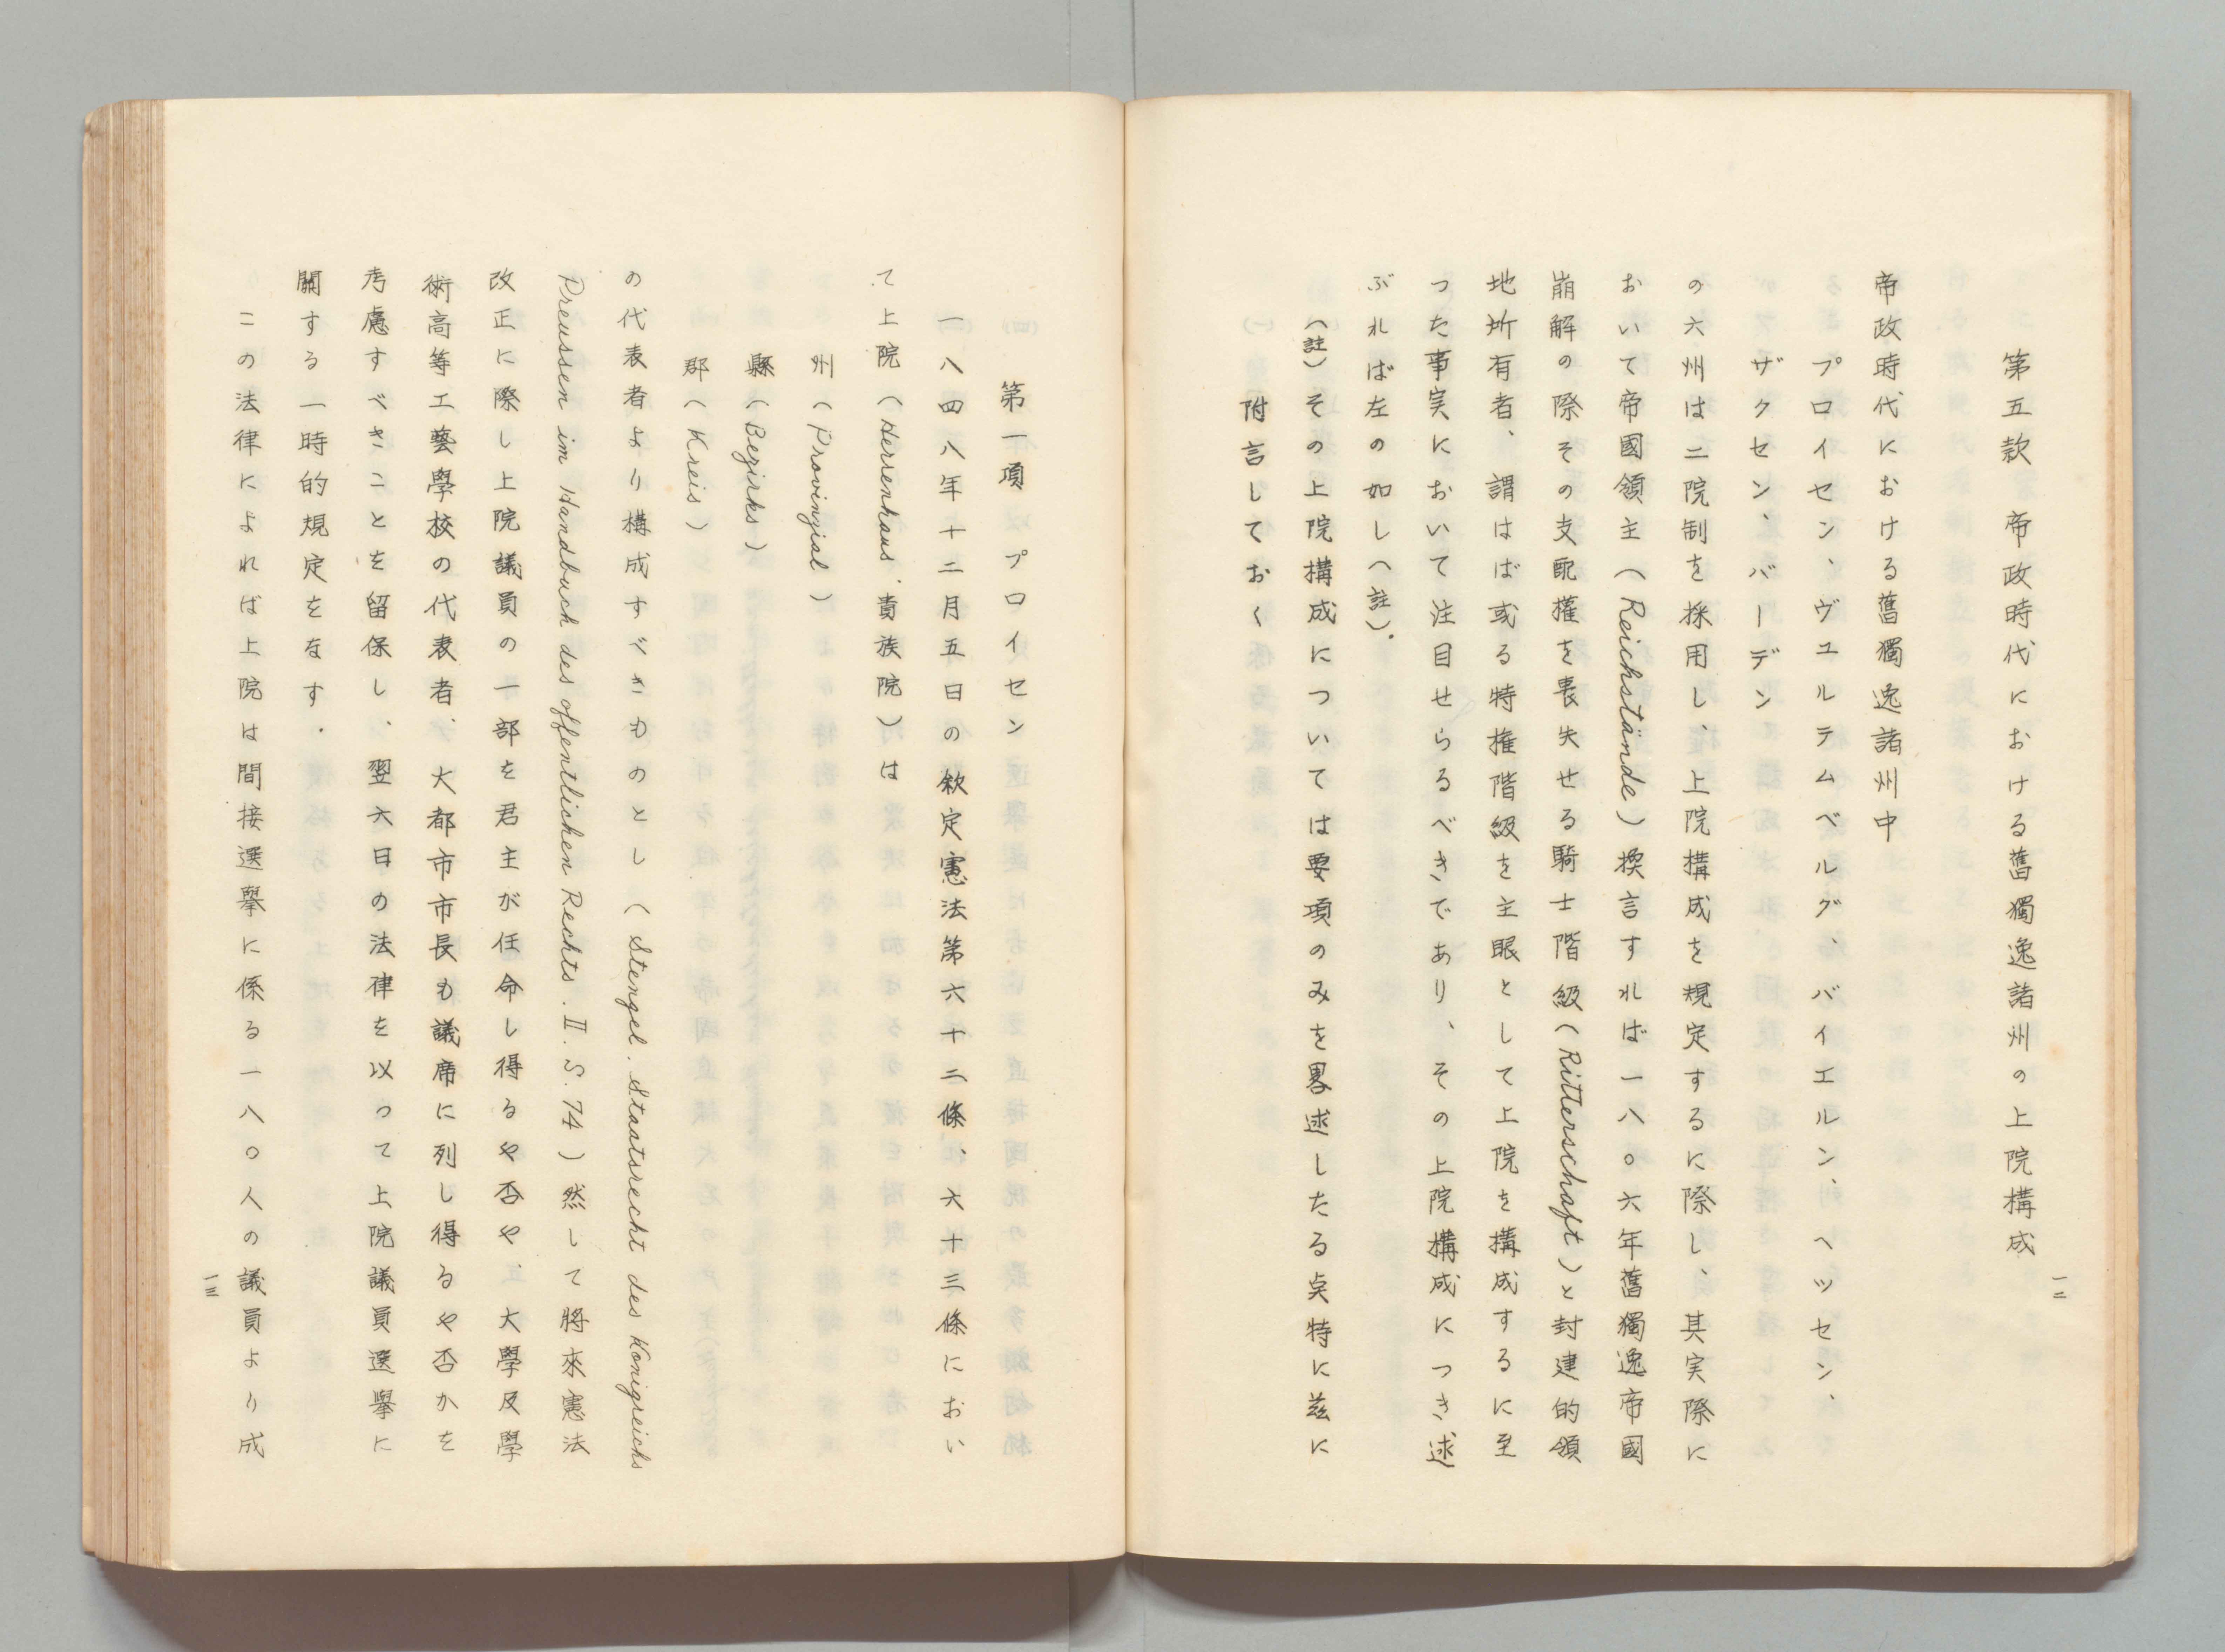 第五款　帝政時代における舊獨逸諸州の上院構成
帝政時代における舊獨逸諸州中
プロイセン、ヴユルテムベルグ、バイエルン、ヘツセン、
ザクセン、バーデン
の六州は二院制を採用し、上院構成を規定するに際し、其実際に
おいて帝國領主（Reichstände）換言すれば一八〇六年舊獨逸帝國
崩解の際その支配權を喪失せる騎士階級（Ritterschaft）と封建的領
地所有者、謂はば或る特権階級を主眼として上院を構成するに至
つた事実において注目せらるべきであり、その上院構成につき述
ぶれば左の如し（註）。
（註）その上院構成については要項のみを畧述したる点特に茲に
附言しておく
一二
第一項　プロイセン
一八四八年十二月五日の欽定憲法第六十二條、六十三條におい
て上院（Herrenhaus、貴族院）は
州（Provinzial）
縣（Bezirks）
郡（Kreis）
の代表者より構成すべきものとし（Stengel. Staatsrecht des Konigreichs
Preussen im Handbuch des offentlichen Rechts. II. S. 74）然して將來憲法
改正に際し上院議員の一部を君主が任命し得るや否や、大學及學
術高等工藝學校の代表者、大都市市長も議席に列し得るや否かを
考慮すべきことを留保し、翌六日の法律を以つて上院議員選擧に
關する一時的規定をなす．
この法律によれば上院は間接選擧に係る一八〇人の議員より成
一三